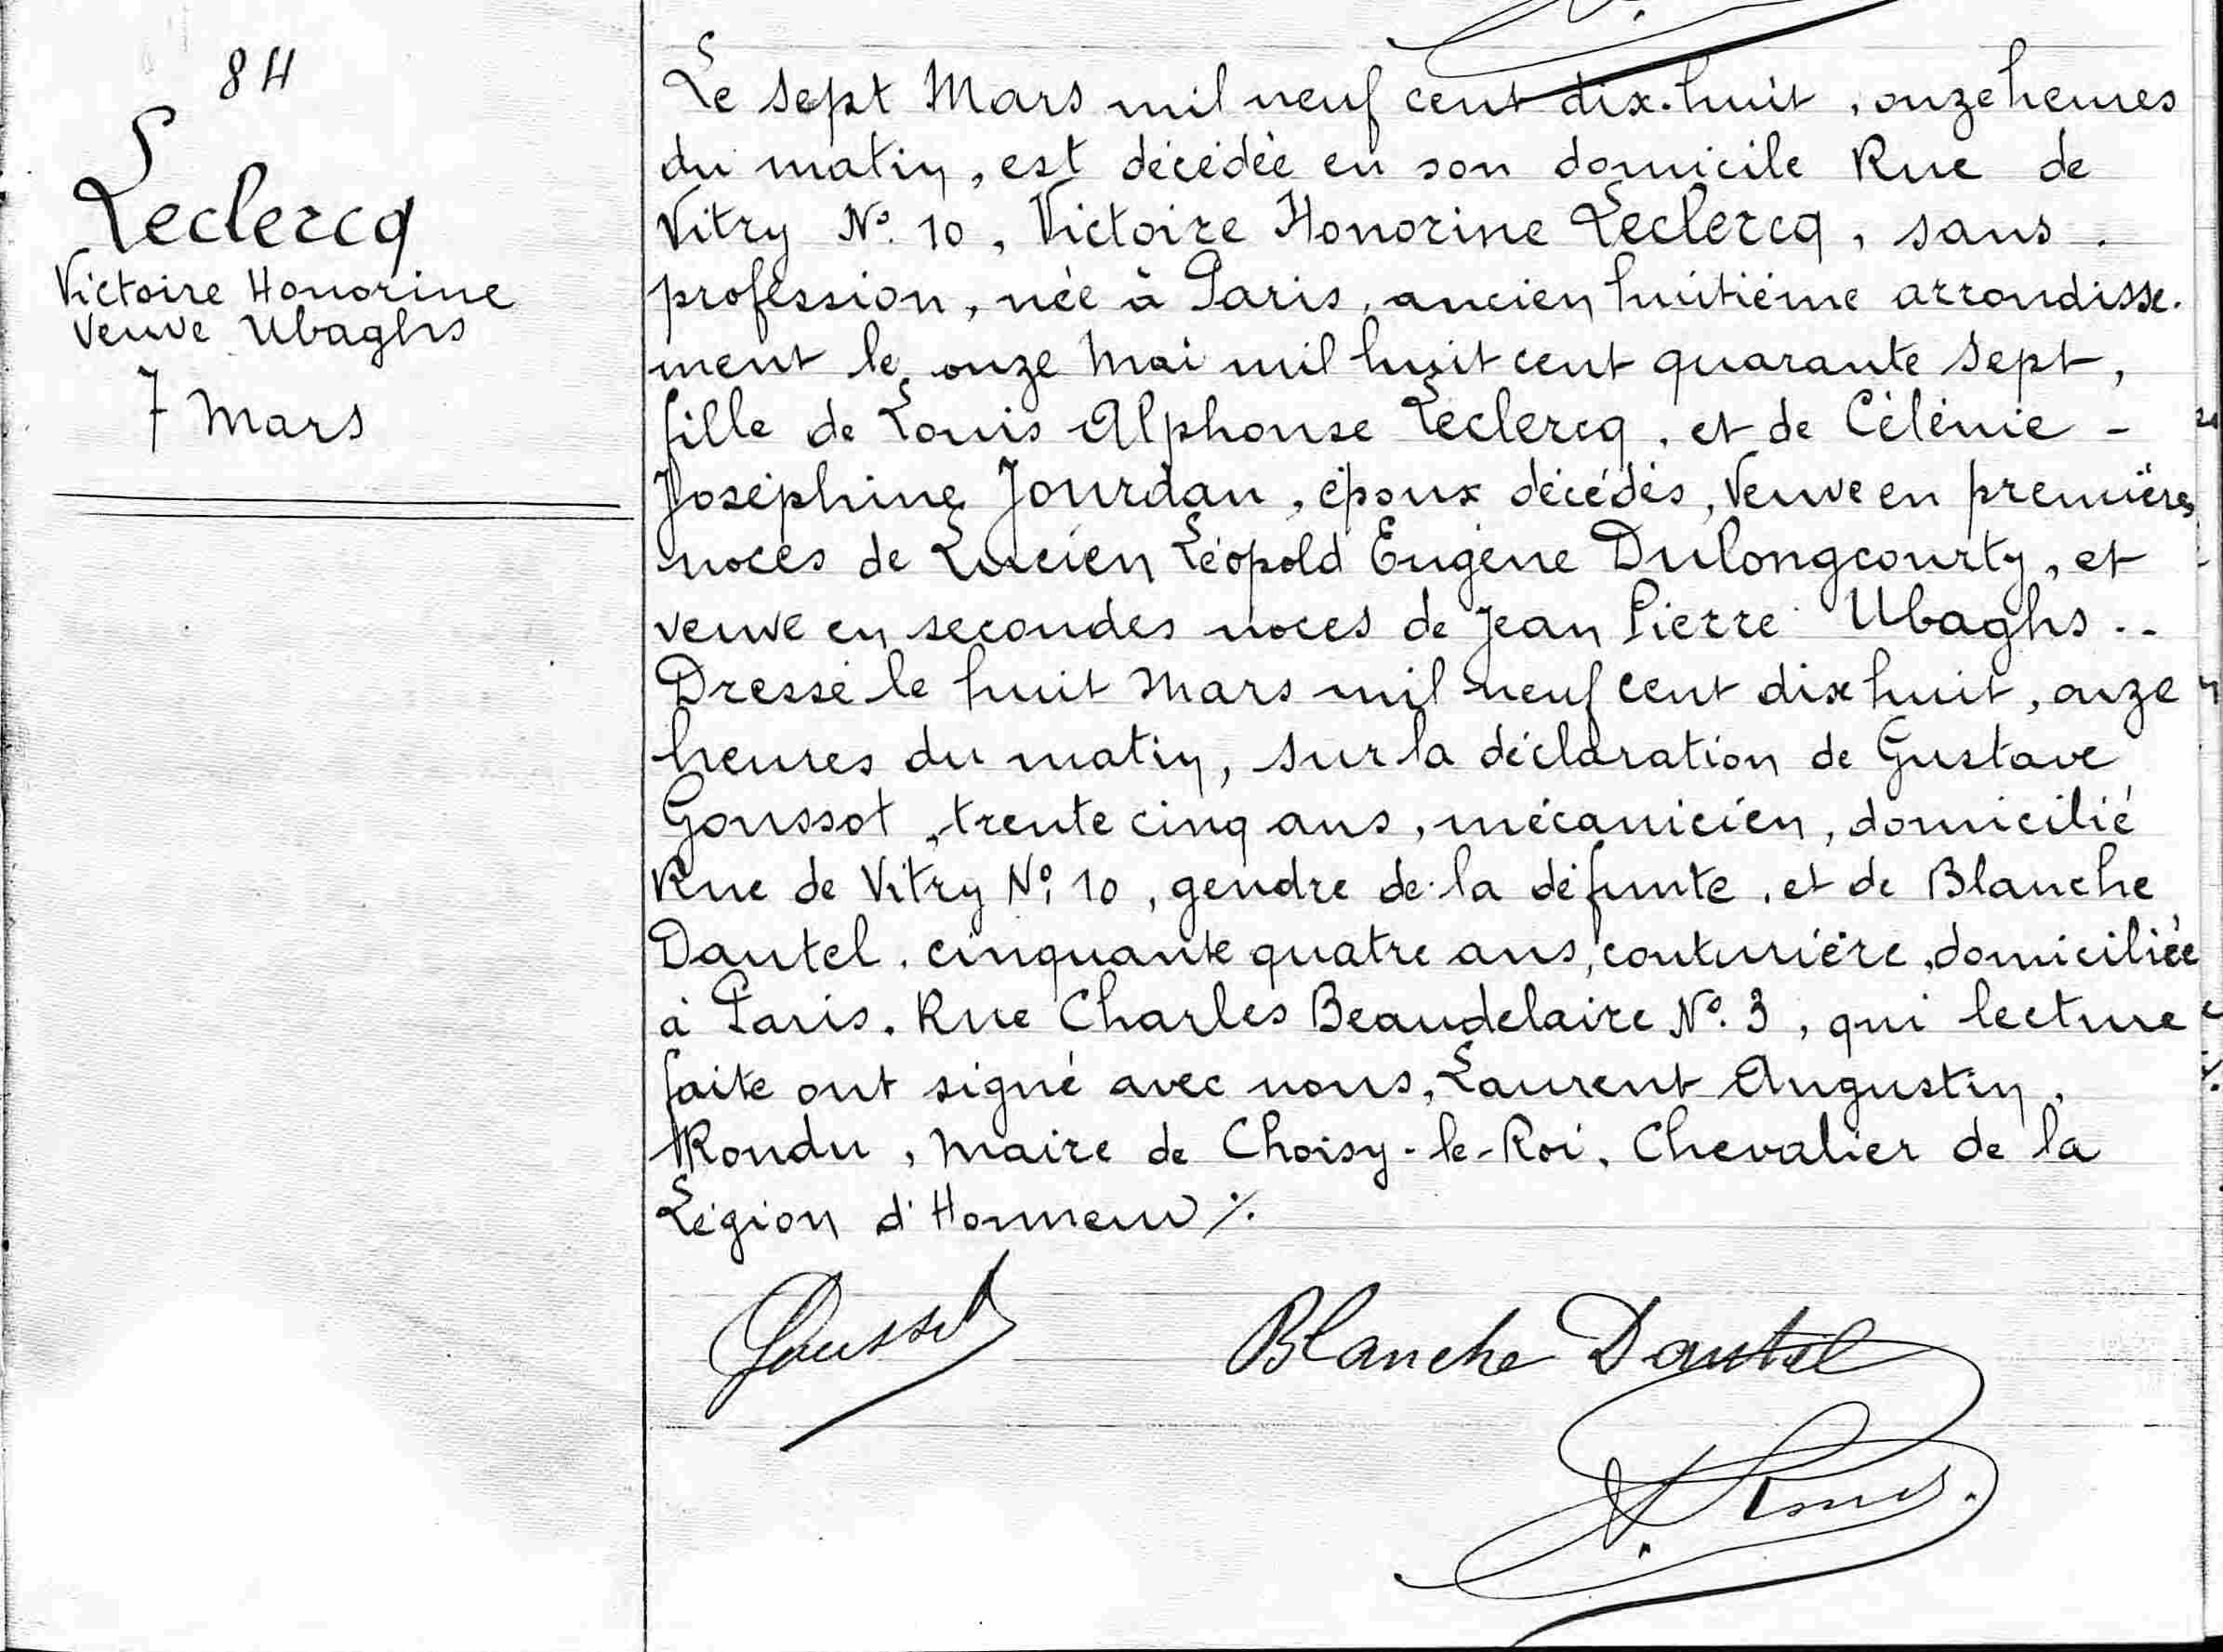 84
Leclercq
Victoire Honorine
Veuve Ubaghs
7 Mars
Le sept Mars mil neuf cent dix-huit, onze heures
du matin, est décédée en son domicile Rue de
Vitry N° 10, Victoire Honorine Leclercq, sans
profession, née à Paris, ancien huitième arrondisse-
ment le onze Mai mil huit cent quarante sept,
fille de Louis Alphonse Leclercq, et de Célénie -
Joséphine Jourdan, époux décédés, Veuve en premières
noces de Lucien Léopold Eugène Dulongcourty, et
veuve en secondes noces de Jean Pierre Ubaghs. -
Dressé le huit Mars mil neuf cent dix huit, onze
heures du matin, sur la déclaration de Gustave
Goussot, trente cinq ans, mécanicien, domicilié
Rue de Vitry N° 10, gendre de la défunte, et de Blanche
Dautel, cinquante quatre ans, couturière, domiciliée
à Paris, Rue Charles Beaudelaire N° 3, qui lecture
faite ont signé avec nous, Laurent Augustin,
Rondu, Maire de Choisy-le-Roi, Chevalier de la
Légion d'Honneur ./.
Goussot
Blanche Dautel